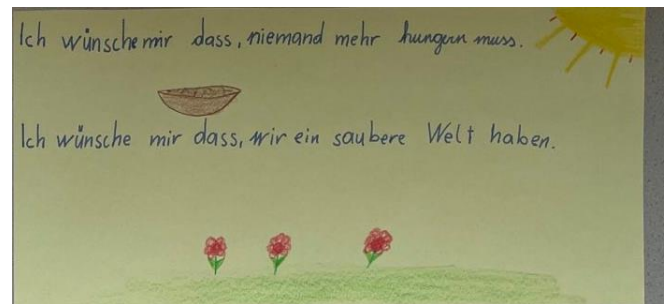 Ich wünsche mir dass, niemand mehr hungern muss.
Ich wünsche mir dass, wir ein saubere Welt haben.